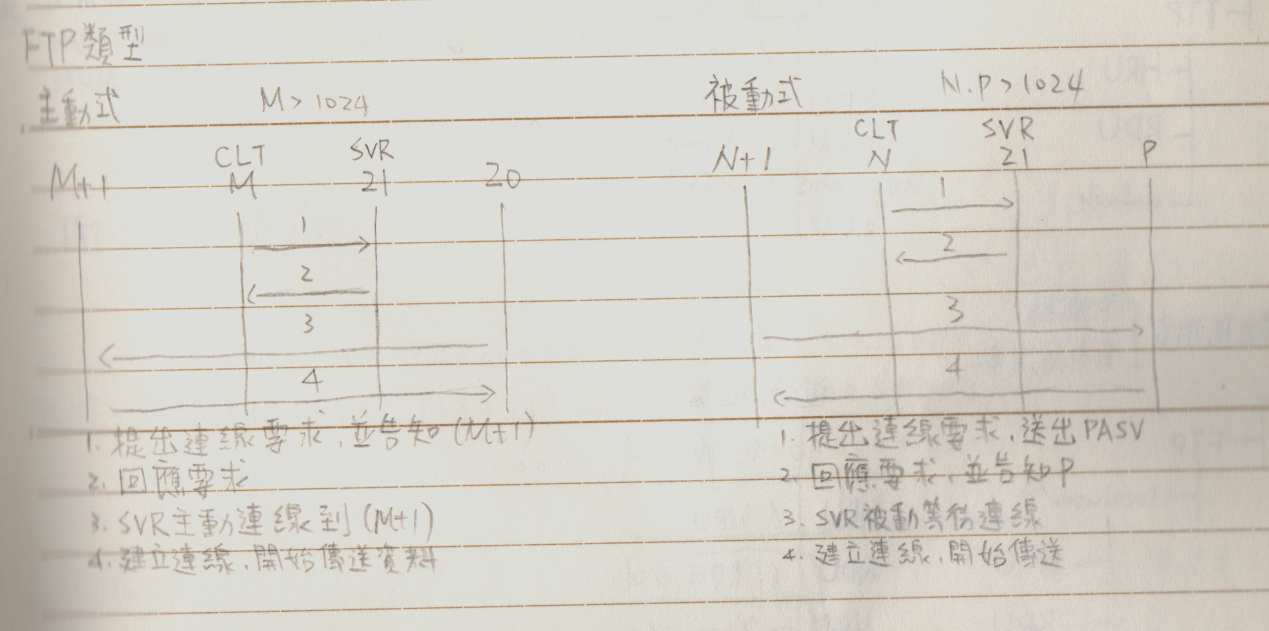 FTP類型
主動式 M>1024
CLT SVR
M+1 M 21 20
1
2
3
4
1. 提出連線要求,並告知(M+1)
2. 回應要求
3. SVR主動連線到(M+1)
4. 建立連線,開始傳送資料
被動式 N.P>1024
CLT SVR
N+1 N 21 P
1
2
3
4
1. 提出連線要求,送出PASV
2. 回應要求,並告知P
3. SVR被動等待連線
4. 建立連線,開始傳送